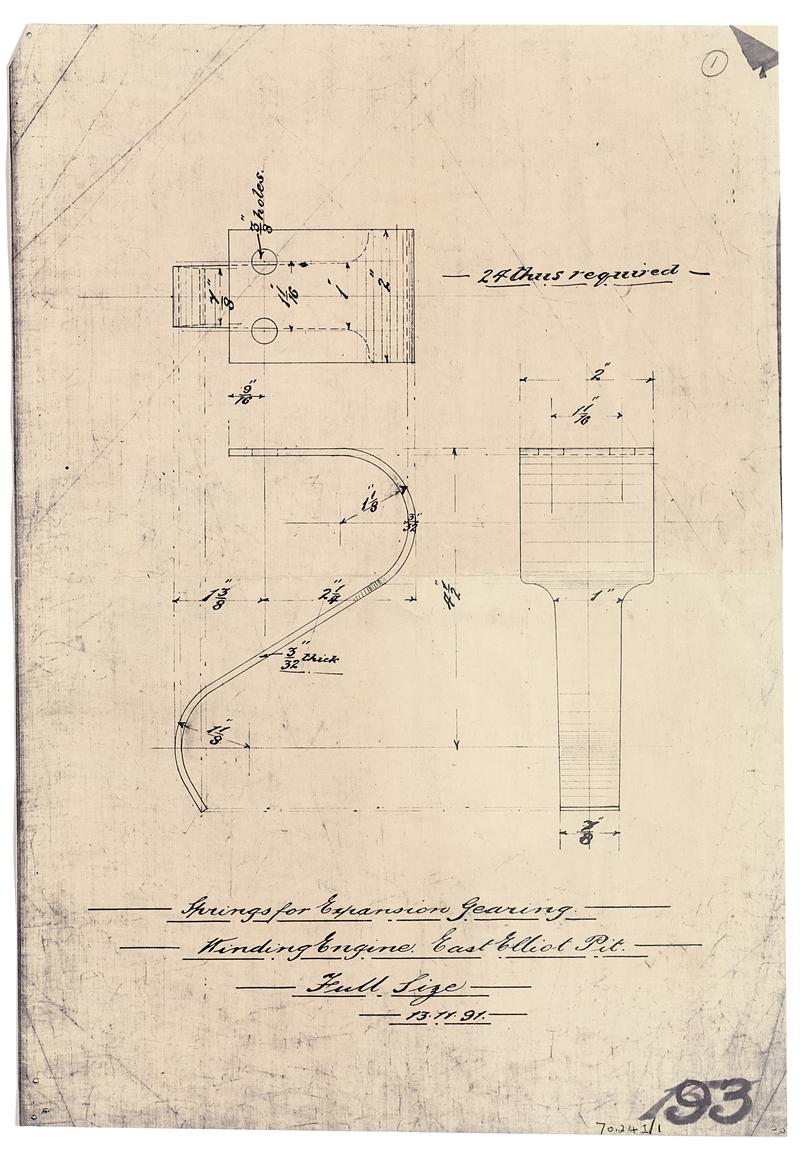 1
3/8" holes.
7/8"
1 1/16"
1"
2"
24 thus required
9/16"
2"
1 1/16"
1 1/8"
3/32"
1 3/8"
2 1/4"
4 1/2"
1"
3/32" thick
1 1/8"
7/8"
Springs for Expansion Gearing.
Winding Engine. East Elliot Pit.
Full Size
13.11.91.
193
70.24 I/1